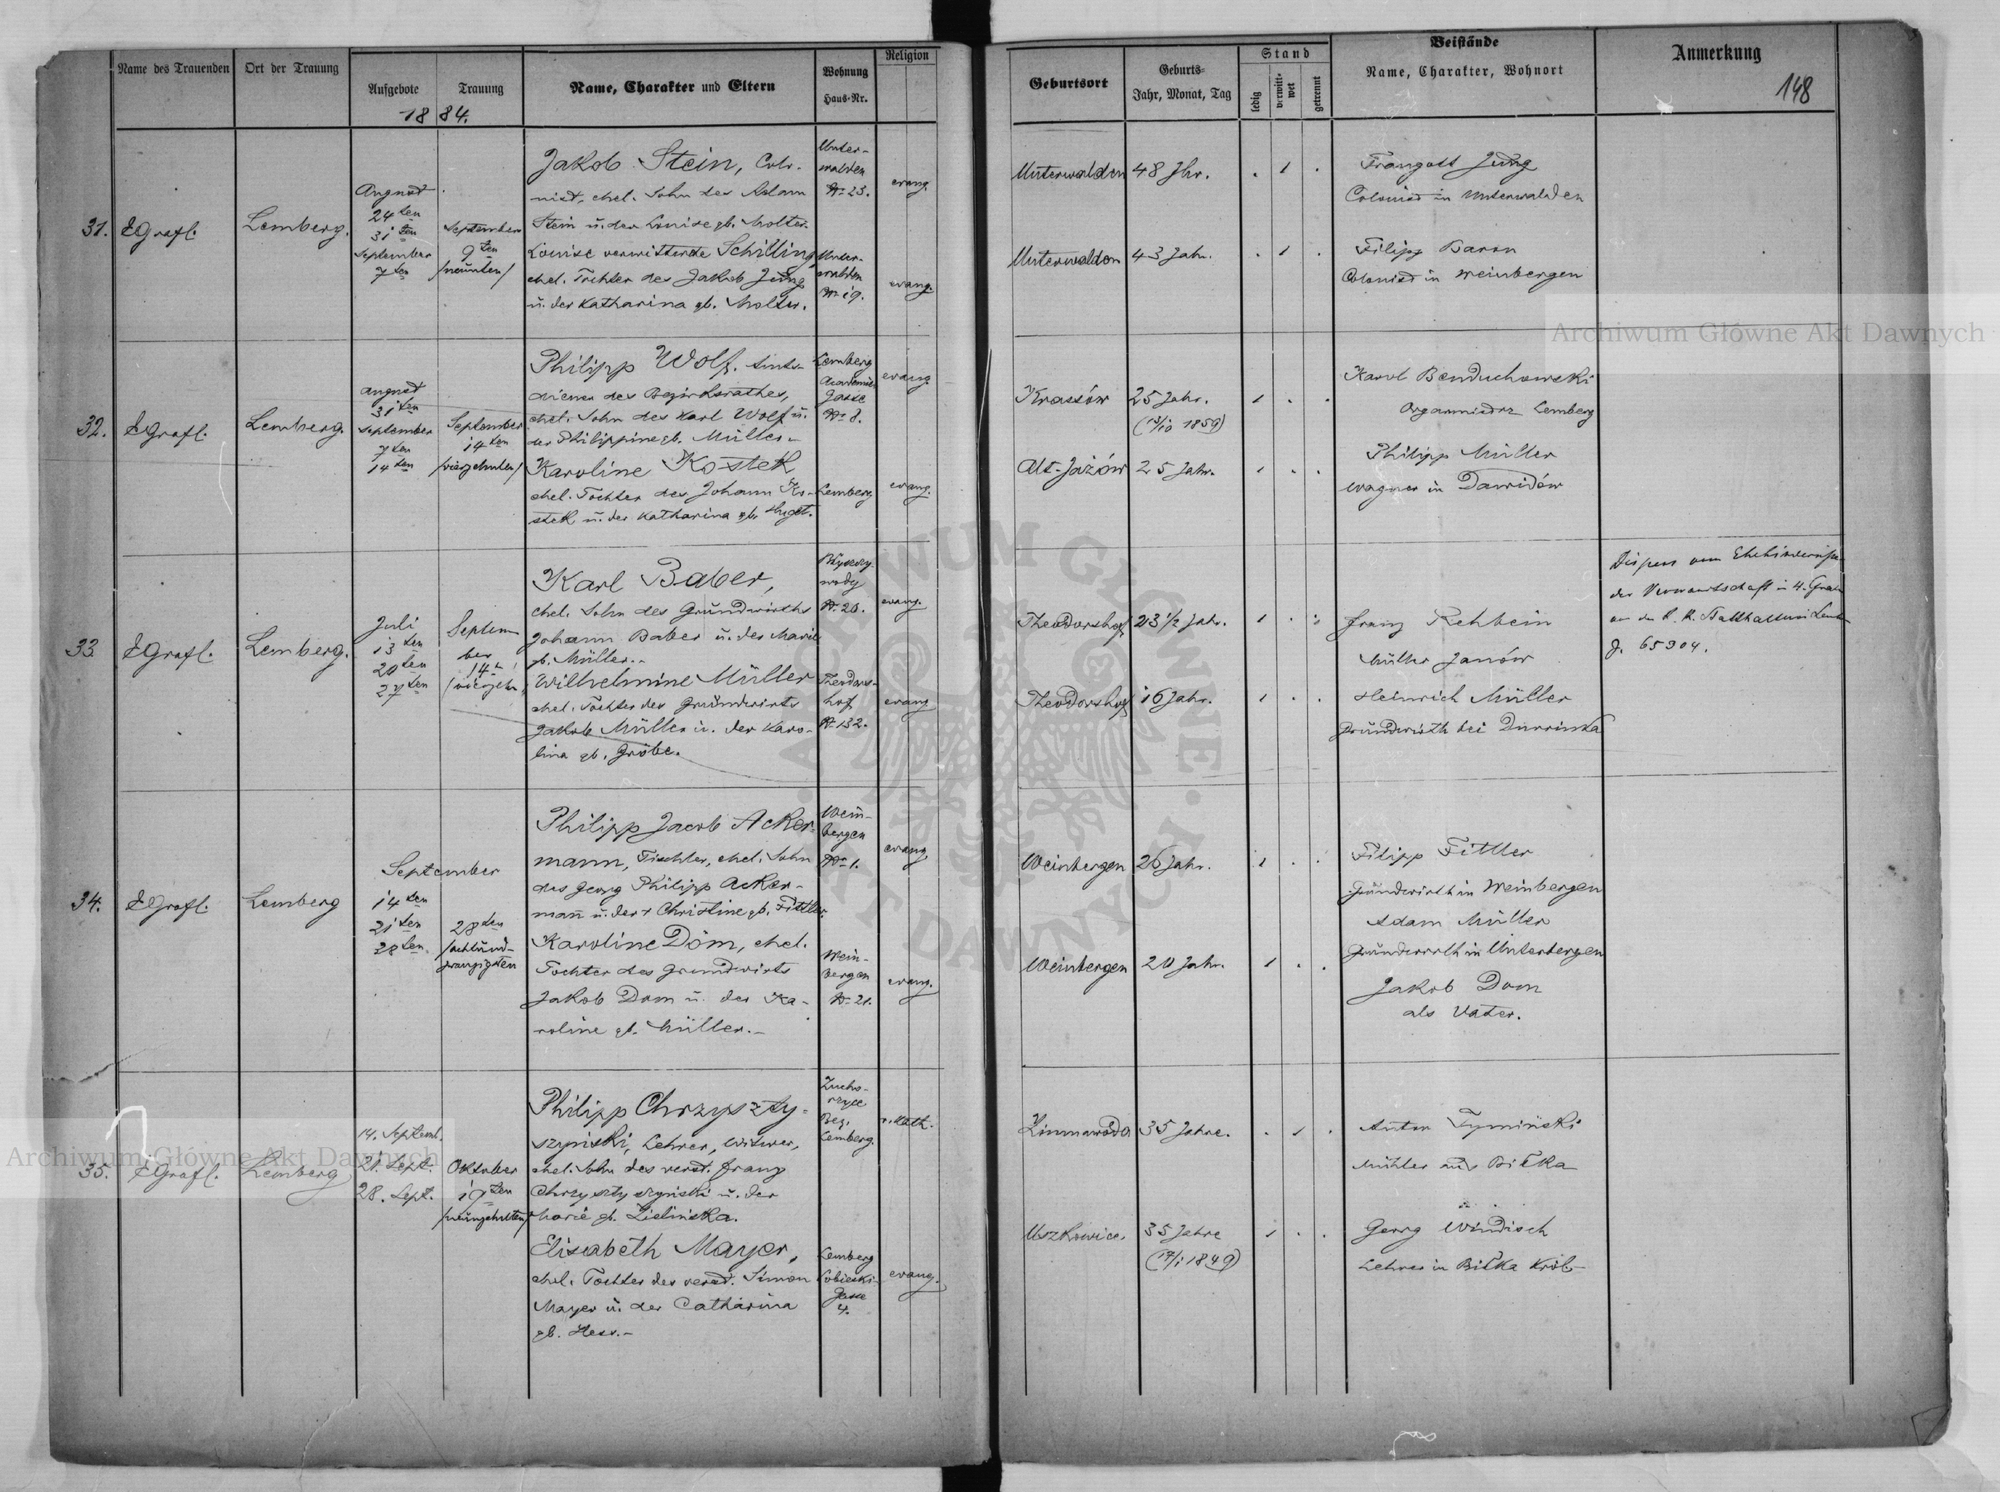 Name des Trauenden
Ort der Trauung
Aufgebote
Trauung
1884.
Name, Charakter und Eltern
Wohnung
Haus-Nr.
Religion
Geburtsort
Geburts-
Jahr, Monat, Tag
Stand
ledig
verwitt-
wet
getrennt
Beistände
Name, Charakter, Wohnort
Anmerkung
148
31.
EGrafl.
Lemberg.
August
24ten
31ten
September
7ten
September
9ten
/neunten/
Jakob Stein, Colo-
nist, ehel. Sohn des Adam
Stein u. der Louise gb. Molter.
Louise verwittwete Schilling
ehel. Tochter des Jakob Jung
u. der Katharina gb. Molter.
Unter-
walden
No 23.
Unter-
walden
No 19.
evang.
evang.
Unterwalden
48 Jhr.
Unterwalden
43 Jahr.
Traugott Jung
Colonist in Unterwalden
Filipp Baron
Colonist in Weinbergen
Archiwum Główne Akt Dawnych
32.
EGrafl.
Lemberg.
August
31ten
September
7ten
14ten
September
14ten
/vierzehnten/
Philipp Wolf, Amts-
diener des Bezirksrathes,
ehel. Sohn des Karl Wolf u.
der Philippine gb. Müller.-
Karoline Kostek
ehel. Tochter des Johann Ko-
stek u. der Katharina gb.
Lemberg
Academie
Gasse
No 8.
Lemberg.
evang.
evang.
Krassów
25 Jahr.
(13/10 1859)
Alt-Jażów
25 Jahr.
Karol Benduchowski
Lemberg
Philipp Müller
Wagner in Dawidów
33.
EGrafl.
Lemberg.
Juli
13ten
20ten
27ten
Septem
ber
14
/vierzehn/
Karl Baber,
ehel. Sohn des Grundwirths
Johann Baber u. der Marie
gb. Müller.-
Wilhelmine Müller
ehel. Tochter des Grundwirts
Jakob Müller u. der Karo-
lina gb. Gröbe.
wody
No 20.
Theodors-
hof
No 132.
evang.
evang
Theodorshof
23 1/2 Jahr.
Theodorshof
16 Jahr.
Franz Rehbein
Müller Janów
Heinrich Müller
Grundwirth bei
Dispens vom Ehehinderniss
der Verwandtschaft in 4. Grade
von der k. k. Statthalterei Lemb.
Z. 65304.
34.
EGrafl.
Lemberg
September
14ten
21ten
28ten
28ten
/achtund-
zwanzigsten
Philipp Jacob Acker-
mann, Tischler, ehel. Sohn
des Georg Philipp Acker-
mann u. der + Christine gb. Fittler
Karoline Dom, ehel.
Tochter des Grundwirts
Jakob Dom u. der Ka-
roline gb. Müller.-
Wein-
bergen
No 1.
Wein-
bergen
No 21.
evang
evang.
Weinbergen
26 Jahr.
Weinbergen
20 Jahr.
Filipp Fittler
Grundwirth in Weinbergen
Adam Müller
Grundwirth in Unterbergen
Jakob Dom
als Vater.
35.
EGrafl.
Lemberg
14. Septemb.
21. Sept.
28. Sept.
Oktober
19ten
/neunzehnten/
Philipp Chrzyszty-
szyński, Lehrer, Witwer,
ehel. Sohn des verst. Franz
Chrzysztyszyński u. der
Marie gb. Zielińska.
Elisabeth Mayer,
ehel. Tochter des verst. Simon
Mayer u. der Catharina
gb. Hess.-
Zucho-
rzyce
Bez.
Lemberg.
Lemberg
Sobieski-
Gasse
4.
r. kath.
evang.
Zimnawoda
35 Jahre.
Uszkowice.
35 Jahre
(17/1 1849)
Anton Tymiński
Müller aus Biłka
Georg Windisch
Lehrer in Biłka Król-
Archiwum Główne Akt Dawnych
ARCHIWUM GŁÓWNE AKT DAWNYCH